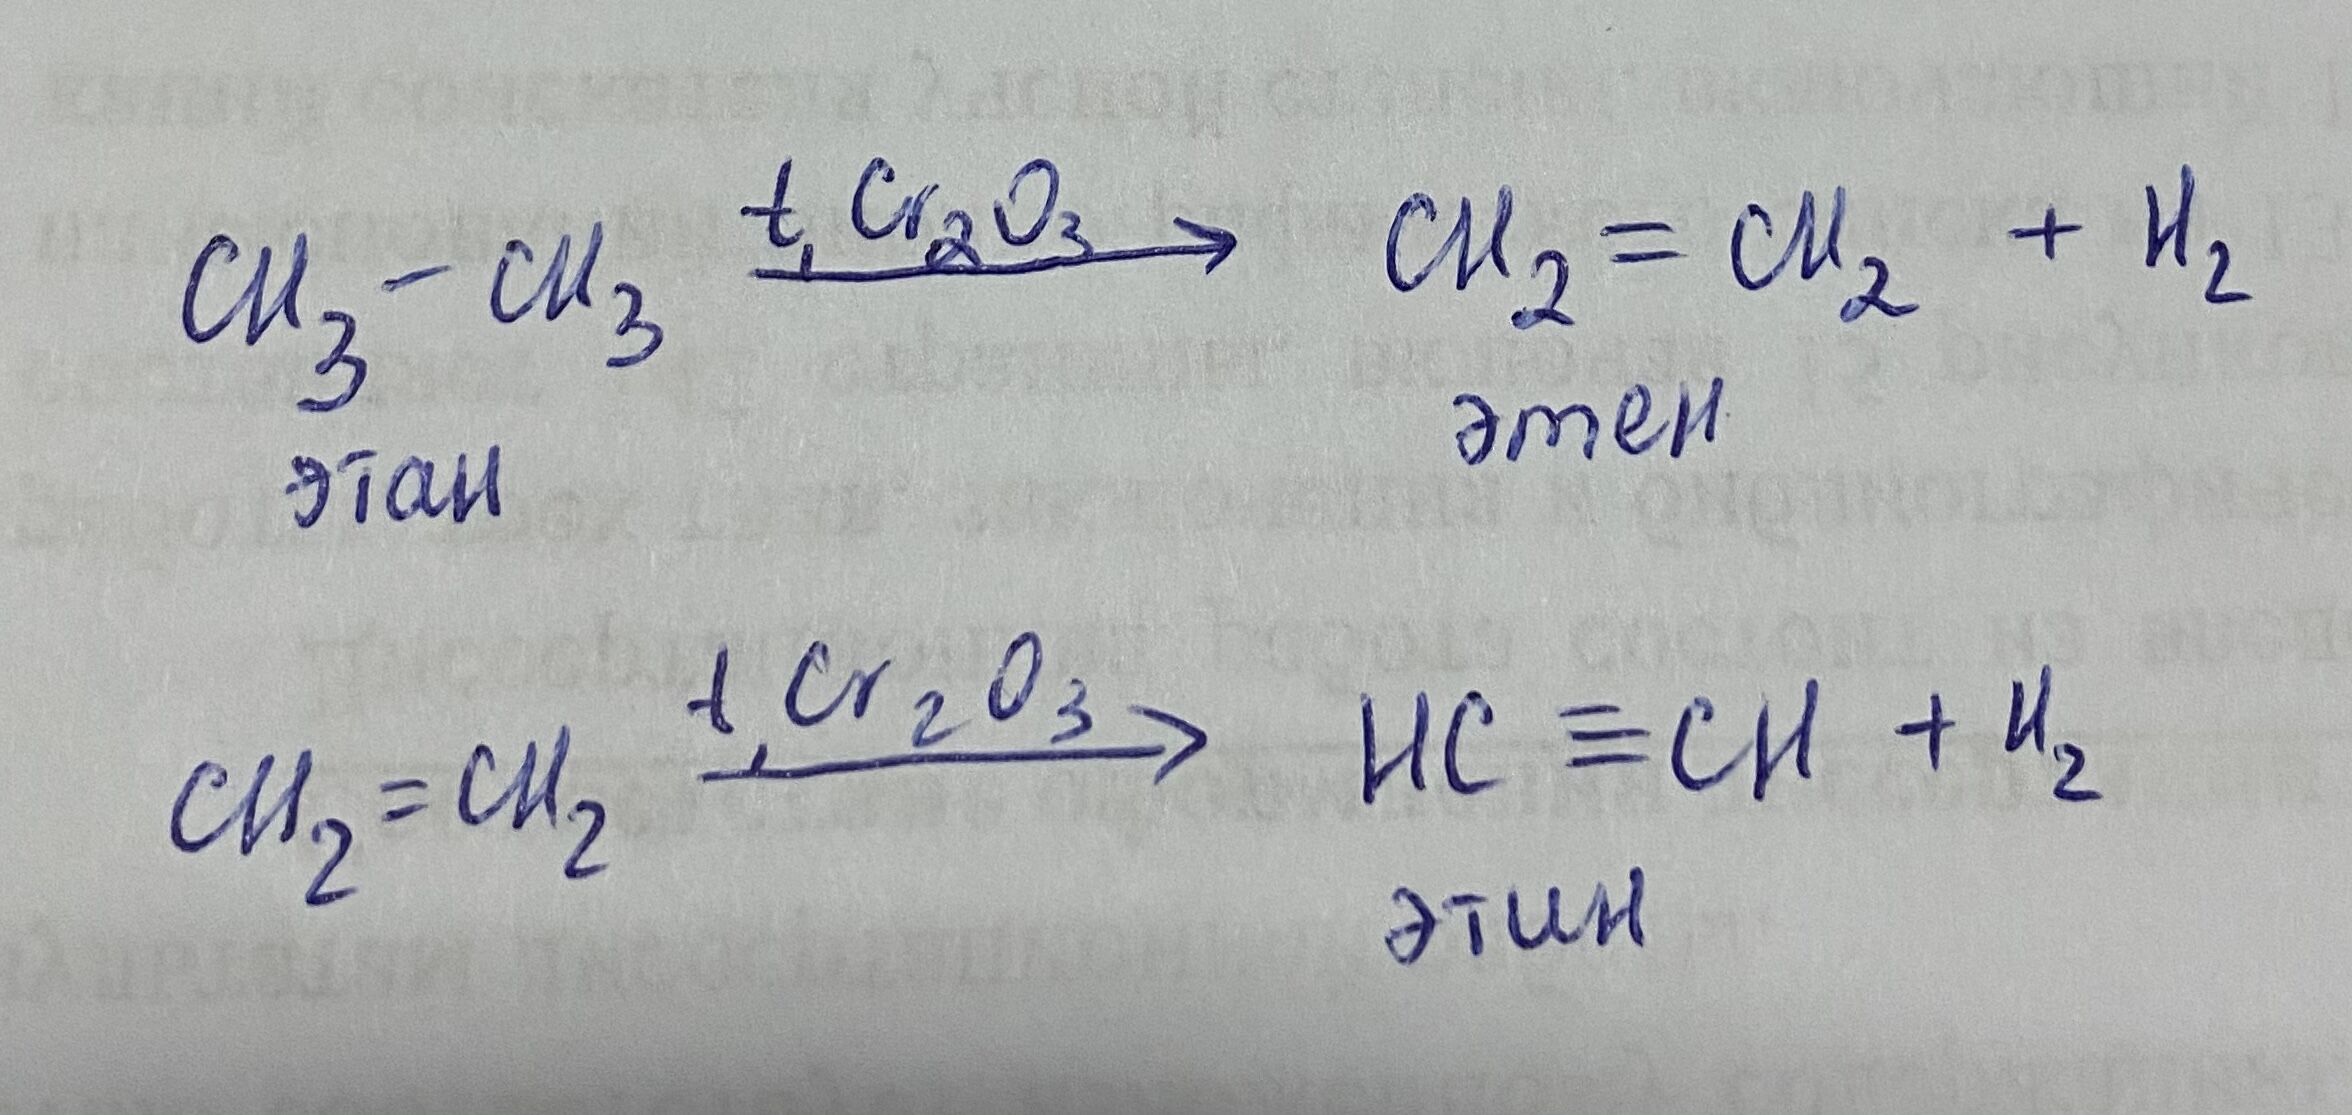 CH₃ - CH₃ t, Cr₂O₃ → CH₂ = CH₂ + H₂
этан этен
CH₂ = CH₂ t, Cr₂O₃ → HC ≡ CH + H₂
этин